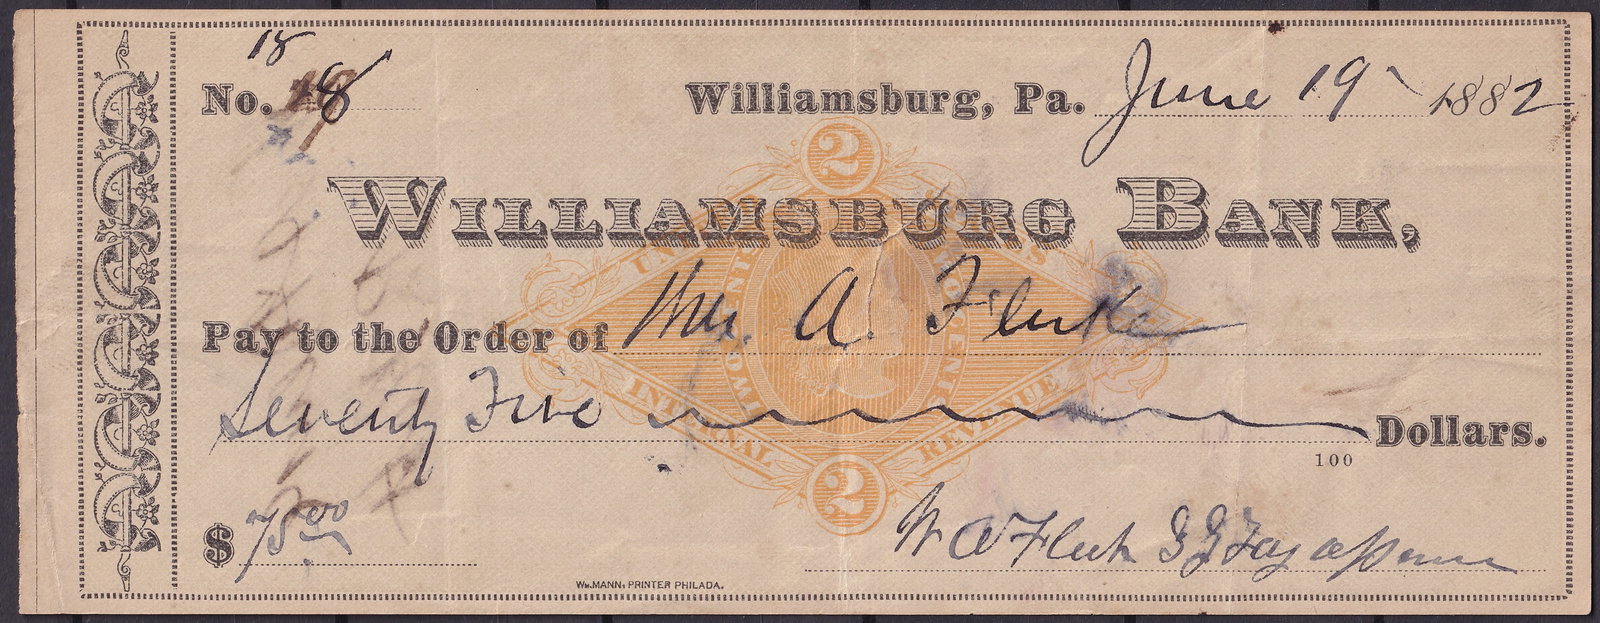 18
No. 18
Williamsburg, Pa. June 19 1882
2
WILLIAMSBURG BANK,
UNITED STATES
Pay to the Order of Mrs. A. Fluke
TWO CENTS
INTERNAL REVENUE
Seventy Five Dollars.
100
2
$ 75.00
W A Fluke
WM. MANN, PRINTER PHILADA.